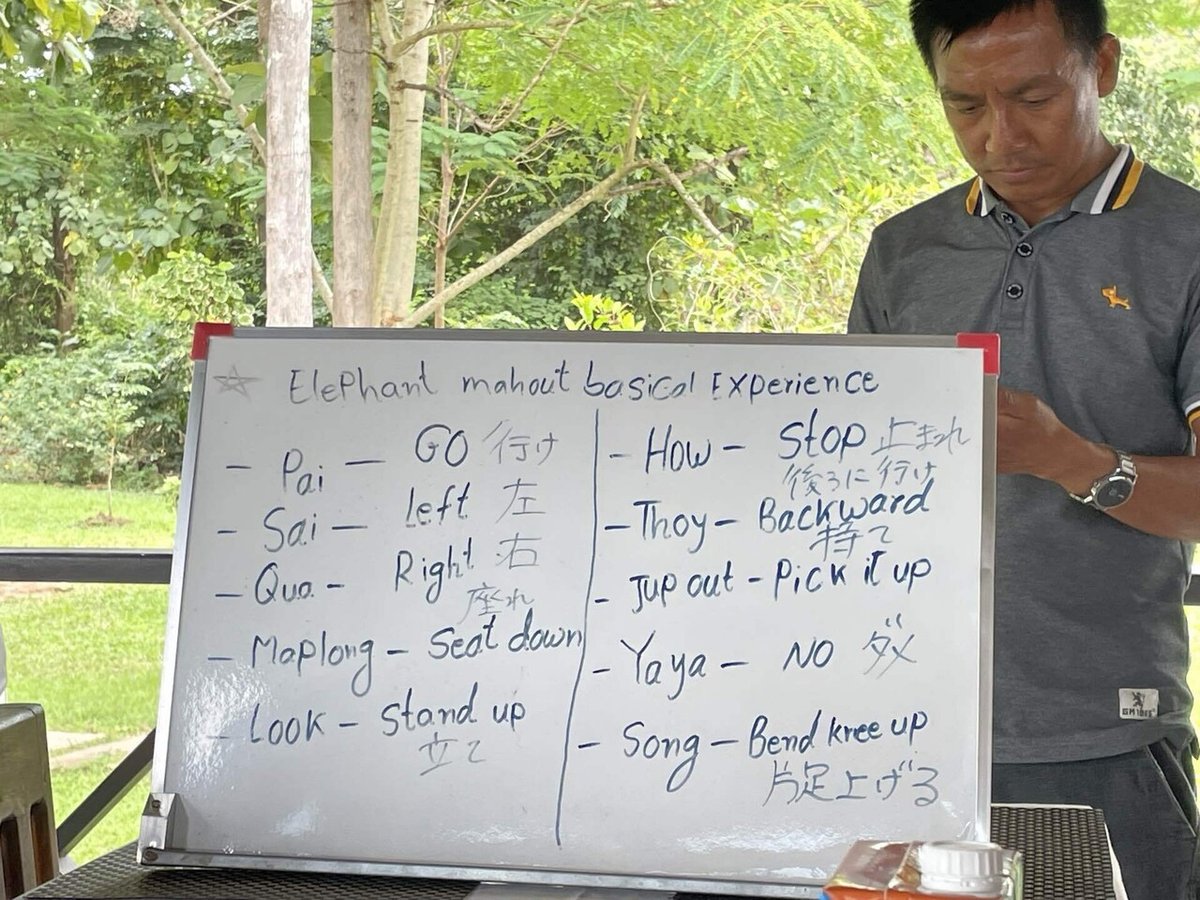 ☆ Elephant mahout basical Experience
- Pai - GO 行け
- Sai - left 左
- Qua - Right 右
座れ
- Maplong - Seat down
- Look - Stand up
立て
- How - Stop 止まれ
後ろに行け
- Thoy - Backward
持て
- Jup out - Pick it up
- Yaya - NO ダメ
- Song - Bend knee up
片足上げる